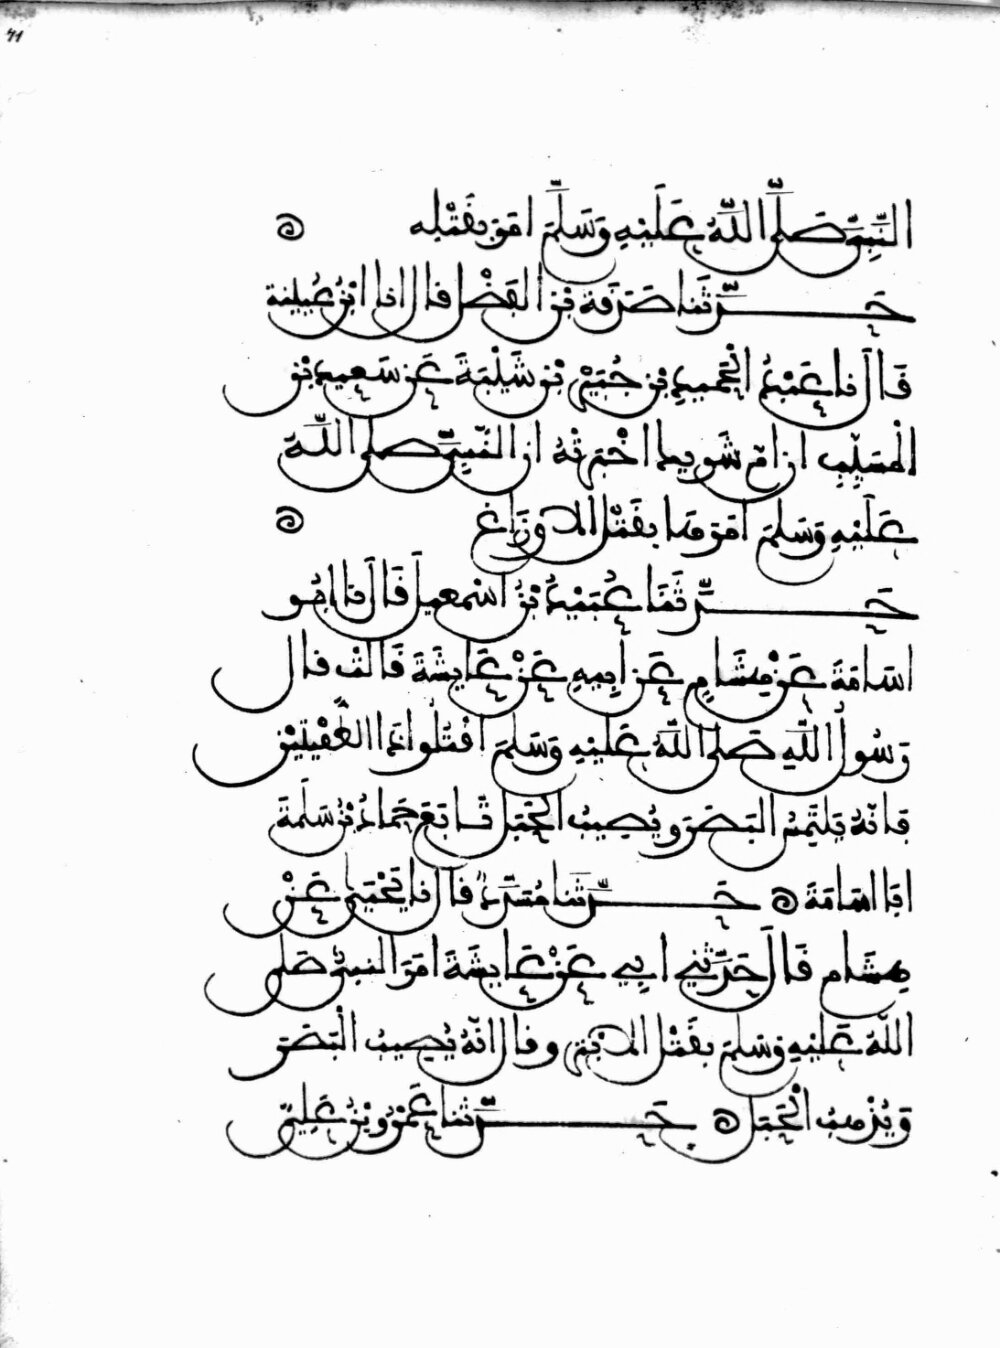 النَّبِيِّ صَلَّى اللَّهُ عَلَيْهِ وَسَلَّمَ أمَرَ بِقَتْلِهِ
حَدَّثَنَا صَدَقَةُ بْنُ الْفَضْلِ قال انا ابْنُ عُيَيْنَةَ
قَالَ نا عَبْدُ الْحَمِيدِ بْنُ جُبَيْرِ بْنِ شَيْبَةَ عَنْ سَعِيدِ بْنِ
الْمُسَيَّبِ ان أمّ شَرِيك اخْبَرَتْهُ ان النَّبِيَّ صلى اللَّهُ
عَلَيْهِ وَسَلَّمَ أمَرَهَا بِقَتْلِ الاوْزَاغ
حَدَّثَنَا عُبَيْدُ بْنُ اسْمعيلَ قَالَ نا ابُو
اسَامَةَ عَنْ هِشَامٍ عَنْ ابِيهِ عَنْ عَايشَةَ قَالَتْ قال
رَسُولُ اللَّهِ صَلى اللَّهُ عَلَيْهِ وَسَلَّمَ اقْتُلُوا ذَا الطُّفْيَتَيْنِ
فَانّهُ يَلْتَمِسُ الْبَصَرَ وَيُصِيبُ الْحَبَلَ تَابَعَ حَمادُ بْنُ سَلَمَةَ
ابَا اسَامَةَ حَدَّثَنَا مُسَدَّدٌ قال نا يَحْيَى عَنْ
هِشَام قَالَ حَدَّثَنِي ابِي عَنْ عَايشَةَ امَرَ النبيُّ صَلى
اللَّهُ عَلَيْهِ وَسَلَّمَ بِقَتْلِ الابْتَرِ وقال انّهُ يُصِيبُ الْبَصَرَ
وَيُذْهِبُ الْحَبَلَ حَدَّثَنَا عَمْرُو بْنُ عَلِيٍّ